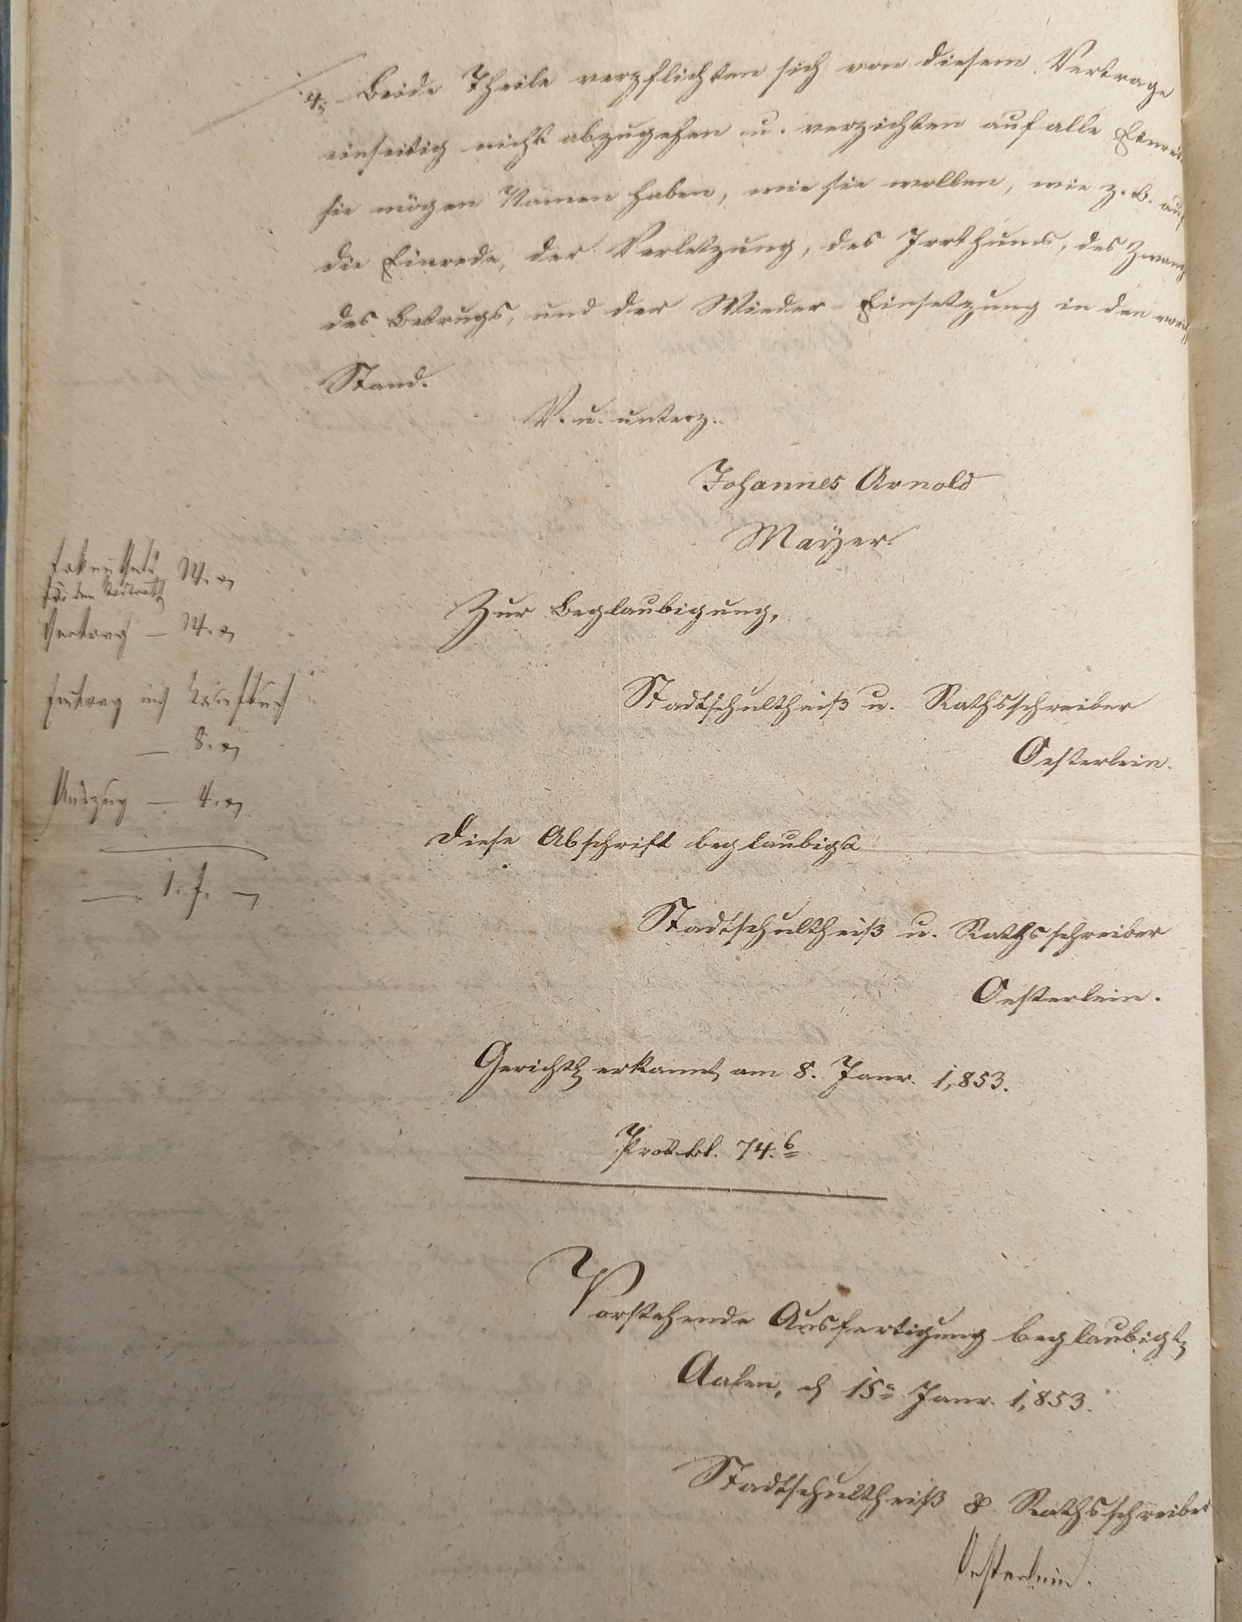 4., Beide Theile verpflichten sich von diesem Vertrage
einseitig nicht abzugehen u. verzichten auf alle
sie mögen Namen haben, wie sie wollen, wie z. B. auf
die Einrede, der Verletzung, des Irrthums, des Zwangs
des Betrugs, und der Wieder-Einsetzung in den vorig
Stand.
V. u. unterz.
Johannes Arnold
Mayer.
Zur Beglaubigung,
Stadtschultheiß u. Rathsschreiber
Oesterlein.
Diese Abschrift beglaubigt
Stadtschultheiß u. Rathsschreiber
Oesterlein.
Gerichtl. erkannt am 8. Janr. 1,853.
Prot. bl. 74.b
Vorstehende Ausfertigung beglaubigt,
Aalen, d 15n Janr. 1,853.
Stadtschultheiß & Rathsschreiber
Oesterlein.
24. x
Vertrag — 24. x
Eintrag ins Kaufbuch
— 8. x
Auszug — 4. x
—. 1. f. —